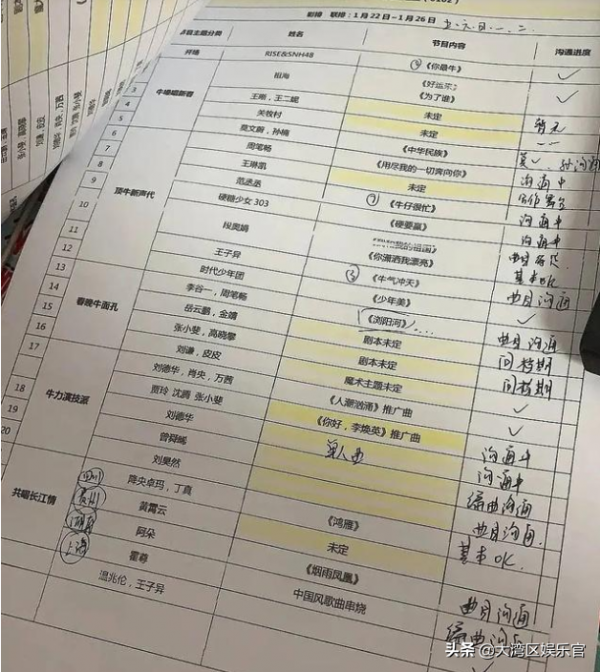 彩排 联排：1月22日-1月26日 五、六、日、一、二
节目主题分类 姓名 节目内容 沟通进度
开场 RISE&SNH48 《你最牛》 ✓
祖海 《好运来》
3 牛嗓唱新春 王刚，王二妮 《为了谁》 ✓
4 关牧村 未定
5 莫文蔚，孙楠 未定 暂无
6 周笔畅 《中华民族》
7 王琳凯 《用尽我的一切奔向你》 沟通中
8 顶牛新声代 范丞丞 未定
9 硬糖少女303 《牛仔很忙》 沟通中
10 《硬要赢》 沟通中
11 段奥娟 我的祖国
12 王子异 《你潇洒我漂亮》 基本OK
13 时代少年团 《牛气冲天》 曲目沟通
14 春晚牛面孔 李谷一，周笔畅 《少年美》 ✓
15 岳云鹏，金靖 《浏阳河》 曲目沟通
16 张小斐，高晓攀 剧本未定 问档期
17 刘谦，皮皮 剧本未定 问档期
刘德华，肖央，万茜 魔术主题未定 ✓
18 牛力演技派 贾玲 沈腾 张小斐 《人潮汹涌》推广曲 ✓
19 刘德华 《你好，李焕英》推广曲 沟通中
20 曾舜晞 单人曲 沟通中
刘昊然 编曲沟通
四川 降央卓玛，丁真 曲目沟通
共唱长江情 贵州 黄霄云 《鸿雁》 基本OK
湖南 阿朵 未定
上海 霍尊 《烟雨凤凰》 曲目沟通
温兆伦，王子异 中国风歌曲串烧 编曲沟通
头条 @大湾区娱乐官